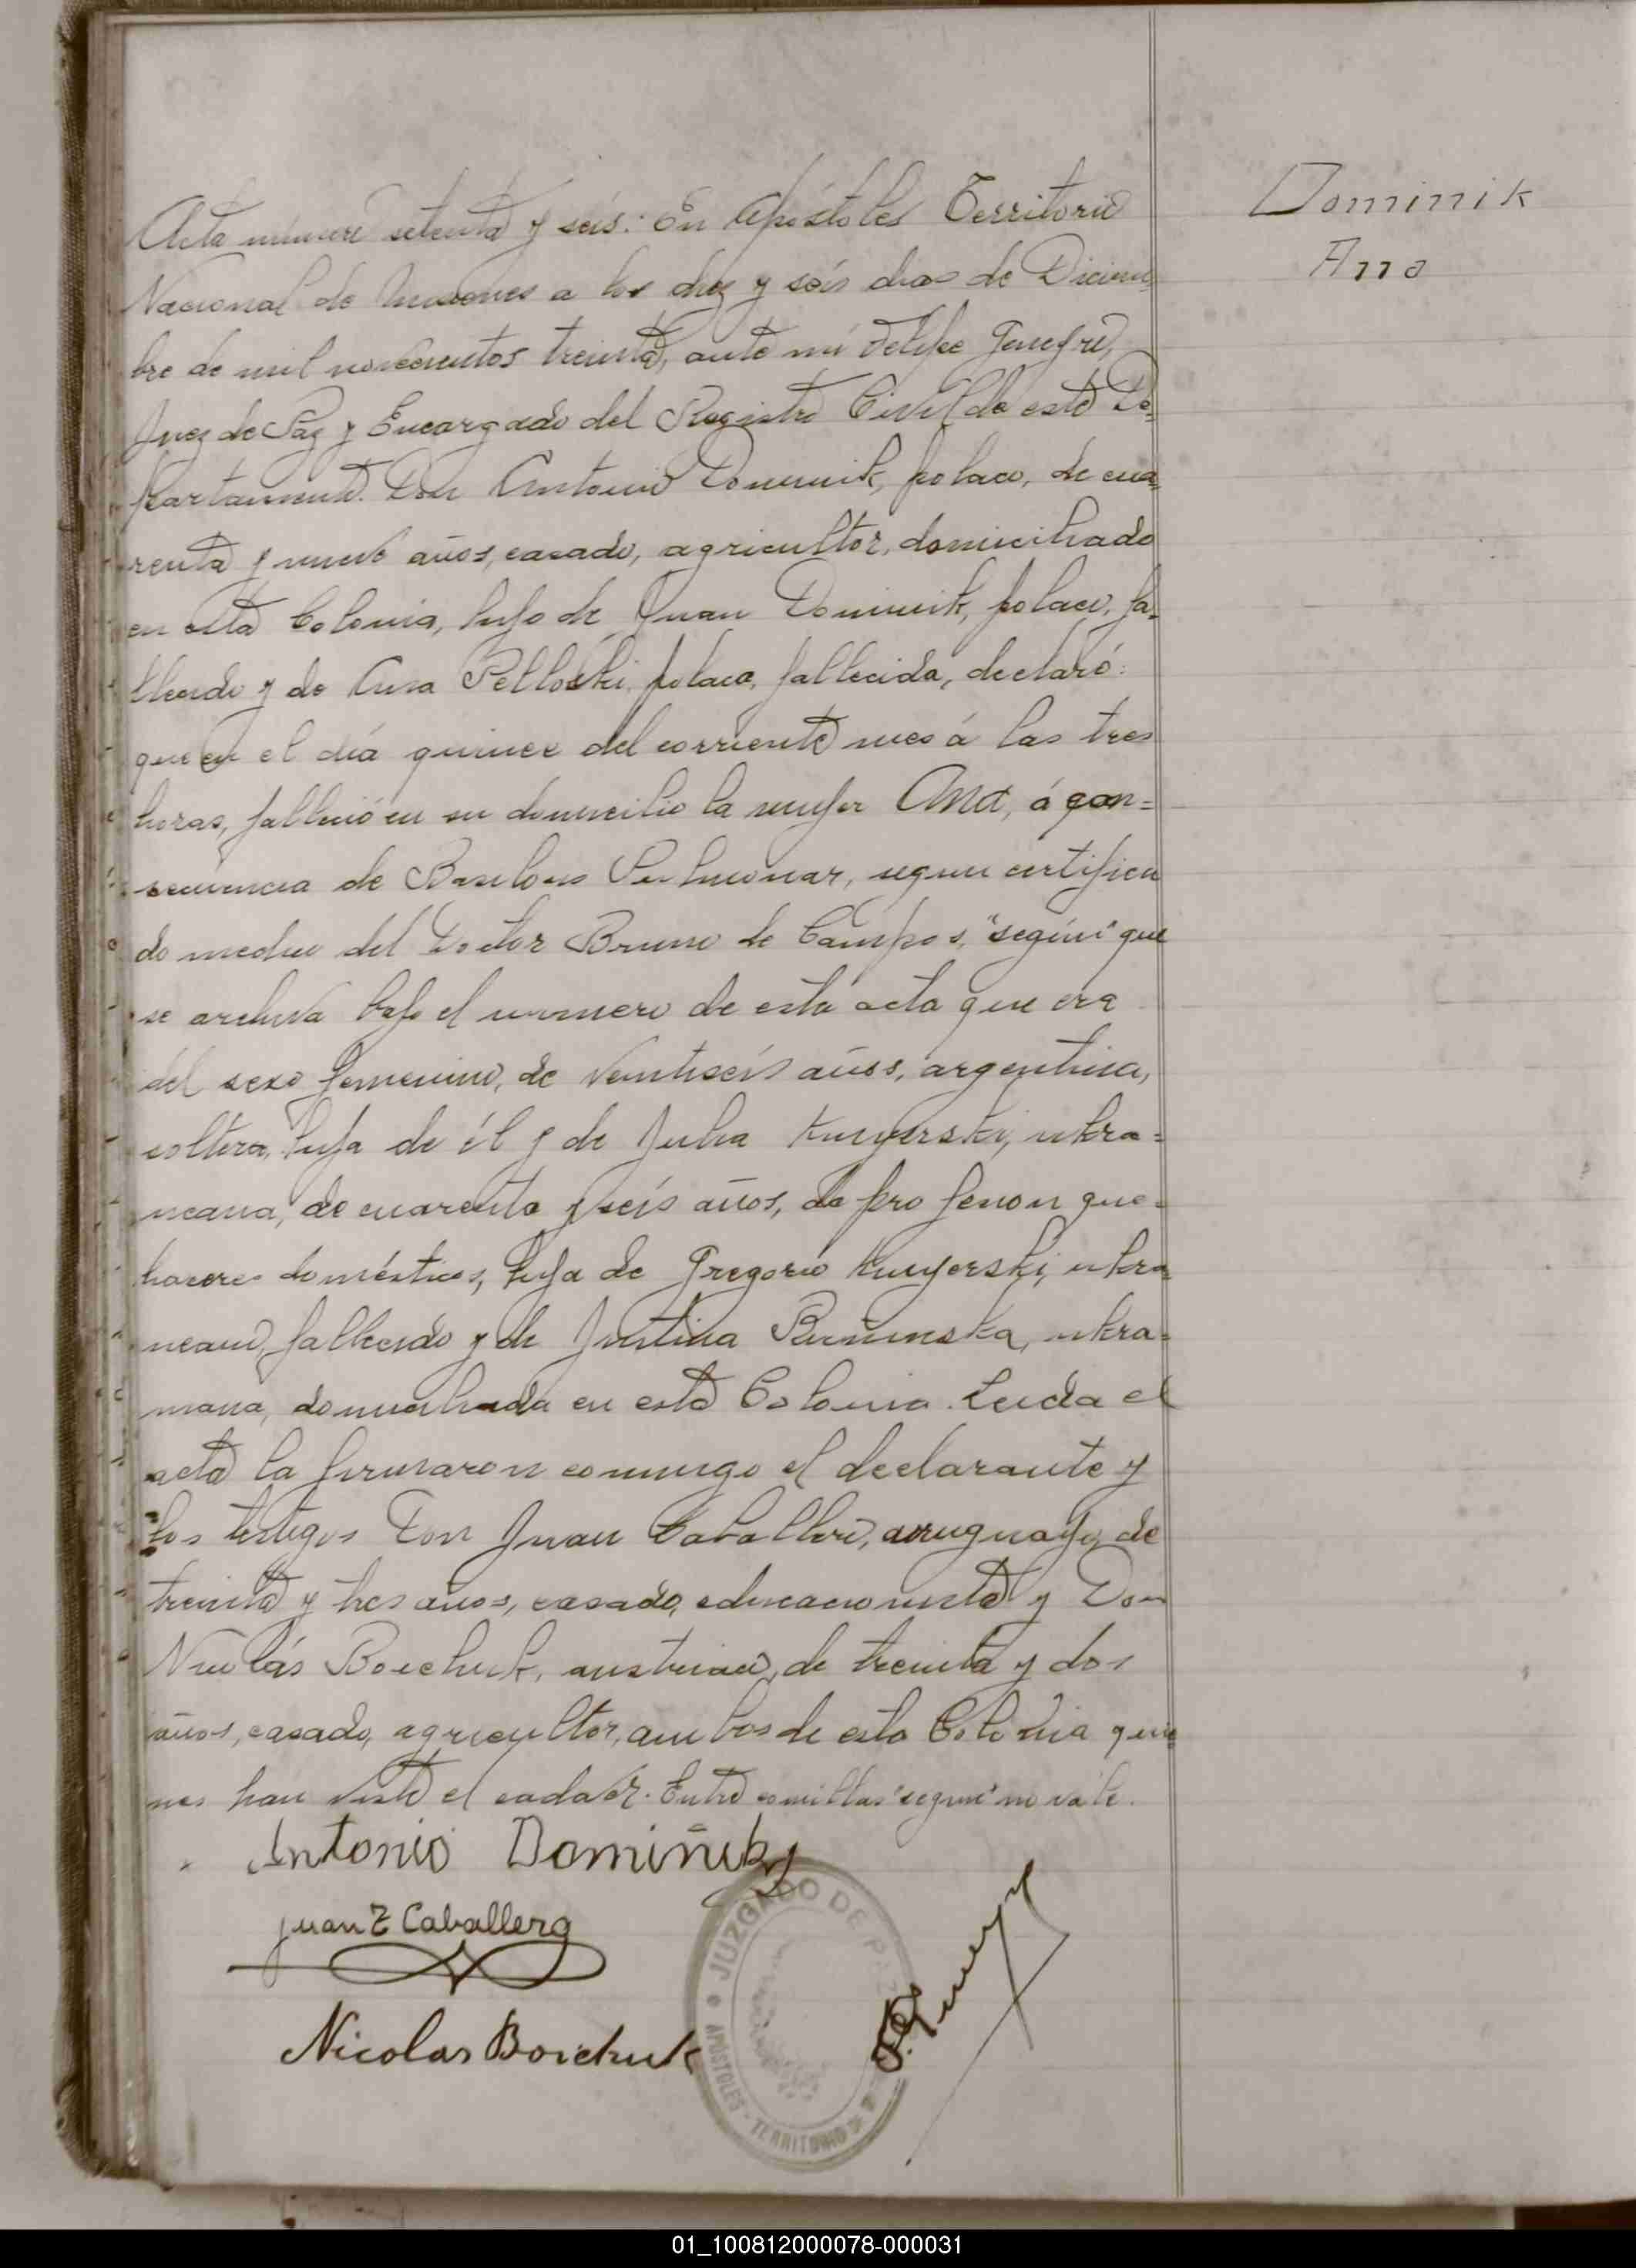 Dominik
Ana
Acta número setenta y seis: En Apóstoles Territorio
Nacional de Misiones a los diez y seis dias de Diciem-
bre de mil novecientos treinta, ante mí Felipe
Juez de Paz y Encargado del Registro Civil de este De-
partamento. Don Antonio Dominik, polaco, de cua-
renta y nueve años, casado, agricultor, domiciliado
en esta Colonia, hijo de Juan Dominik, polaco, fa-
llecido y de Ana Pelloski, polaca, fallecida, declaró:
que en el día quince del corriente mes á las tres
horas, falleció en su domicilio la mujer Ana, á con=
secuencia de Pulmonar, segun certifica
do medico del Doctor Bruno de Campos, "según" que
se archiva bajo el numero de esta acta que era
del sexo femenino, de veintiseis años, argentina,
soltera, hija de él y de Julia Knyerski, ukra=
neana, de cuarenta y seis años, de profesion que=
haceres domésticos, hija de Gregorio Knyerski, ukra
neano, fallecido y de Justina ukra=
niana, domiciliada en esta Colonia. Leida el
acta la firmaron conmigo el declarante y
los testigos Don Juan Caballero, uruguayo, de
treinta y tres años, casado, educacionista y Don
Nicolás Boichuk, austriaco, de treinta y dos
años, casado, agricultor, ambos de esta Colonia quie=
nes han visto el cadaver. Entre comillas "segun" no vale.
Antonio Domiñik
Juan Z Caballero
Nicolas Boichuk
JUZGADO DE PAZ
APOSTOLES - TERRITORIO DE
01_100812000078-000031